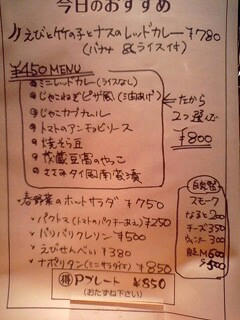 今日のおすすめ
えびと竹の子とナスのレッドカレー ¥780
(バナナ &ライス付)
¥450 MENU
ミニレッドカレー(ライスなし)
じゃこねぎピザ風(油あげ)
じゃこカプナムル
トマトのアンチョビソース
焼そら豆
豆腐のやっこ
ささみタイ風南蛮漬
2つ選ぶ
¥800
春野菜のホットサラダ ¥750
パクトマ(トマトのパクチーあえ) ¥250
パリパリクレソン ¥500
えびせんべい ¥380
ナポリタン(ミニサラダ付) ¥850
自家製
スモーク
なると 200
チーズ 350
ウィンナー 300
得 Pプレート ¥850
(おたずね下さい)